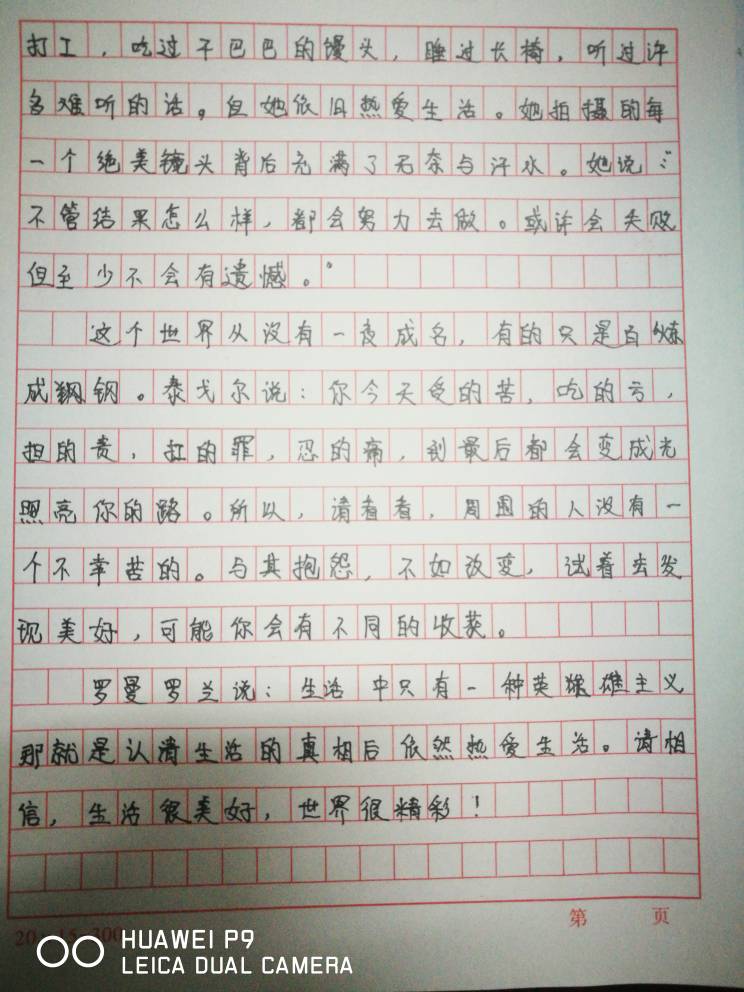 打工，吃过干巴巴的馒头，睡过长椅，听过许
多难听的话。但她依旧热爱生活。她拍摄的每
一个绝美镜头背后充满了无奈与汗水。她说：“
不管结果怎么样，都会努力去做。或许会失败
但至少不会有遗憾。”
这个世界从没有一夜成名，有的只是百炼
成钢。泰戈尔说：你今天受的苦，吃的亏，
担的责，扛的罪，忍的痛，到最后都会变成光
照亮你的路。所以，请看看，周围的人没有一
个不幸苦的。与其抱怨，不如改变，试着去发
现美好，可能你会有不同的收获。
罗曼罗兰说：生活中只有一种英雄主义
那就是认清生活的真相后依然热爱生活。请相
信，生活很美好，世界很精彩！
第 页
HUAWEI P9
LEICA DUAL CAMERA